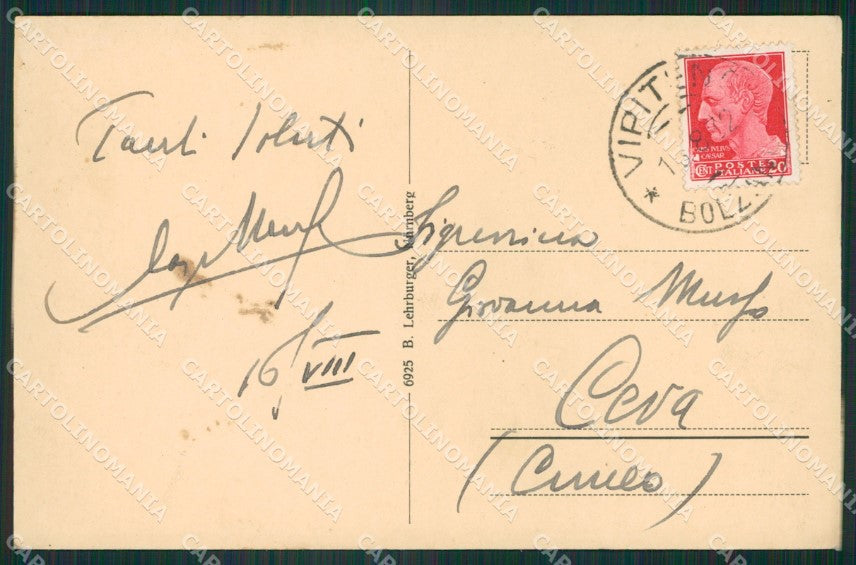 Tanti saluti
16/VIII
6925 B. Lehrburger, Nürnberg
VIPITENO
BOLZ
CAIO IVLIVS
CAESAR
POSTE
CENT ITALIANE 20
Signorina
Giovanna
Ceva
(Cuneo)
CARTOLINOMANIA